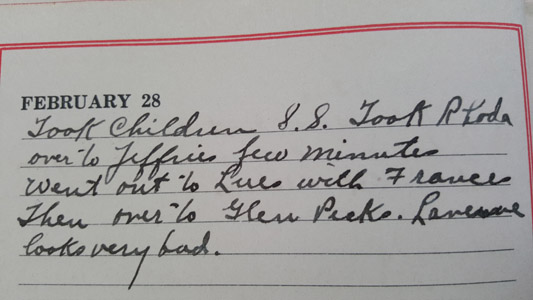 FEBRUARY 28
Took Children S.S. Took Rhoda
over to Jeffries few minutes
Went out to Lues with Frances
Then over to Glen Pecks. Lavenne
looks very bad.